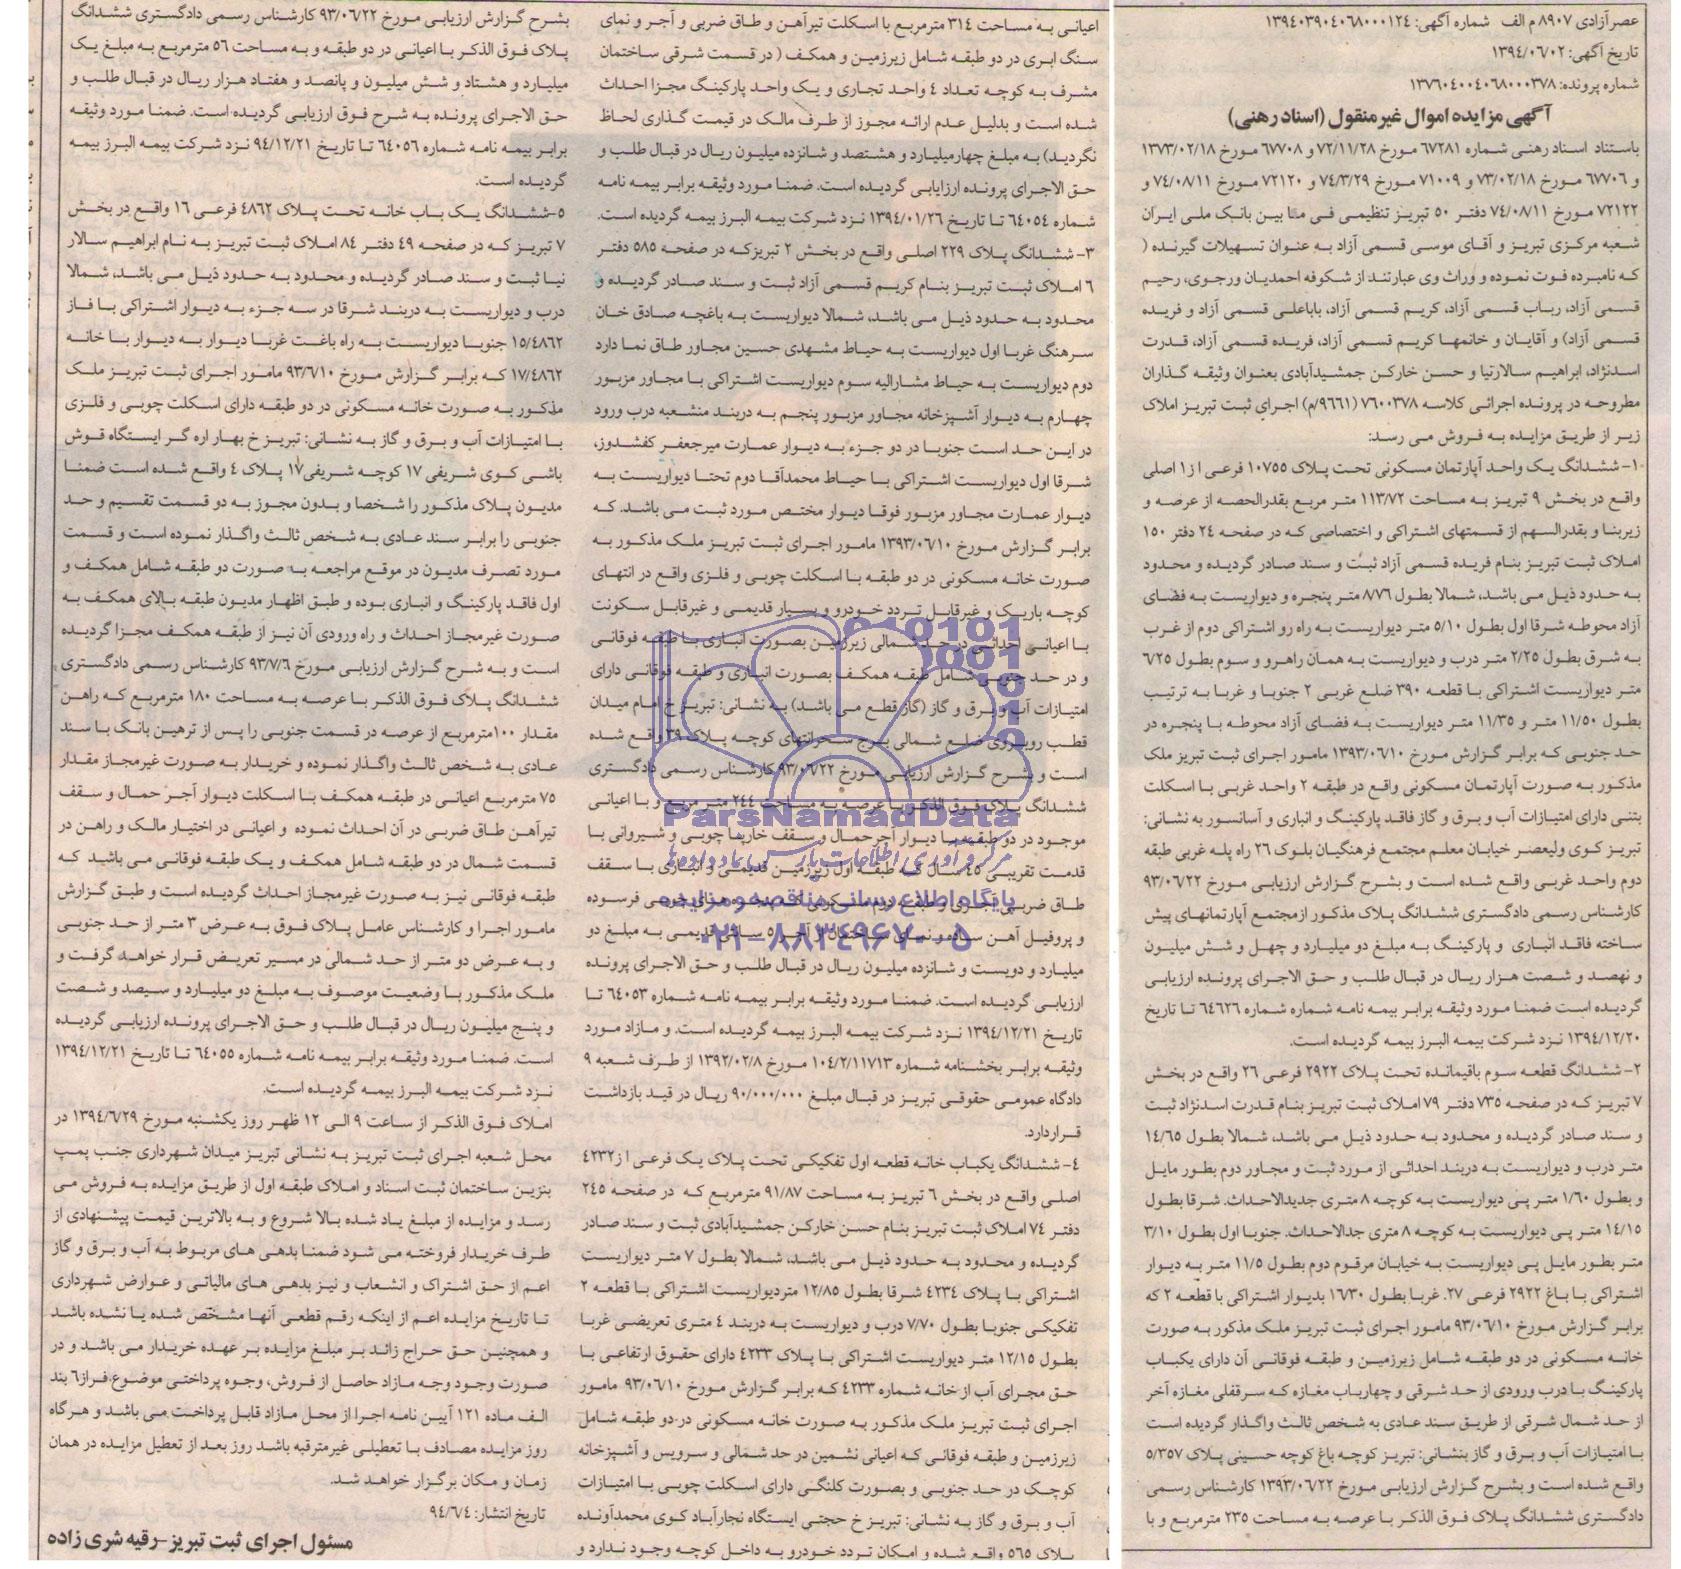 عصرآزادی ۸۹۰۷ م الف شماره آگهی: ۱۳۹۴۰۳۹۰۴۰۶۸۰۰۰۱۲۴
تاریخ آگهی: ۱۳۹۴/۰۶/۰۲
شماره پرونده: ۱۳۷۶۰۴۰۰۴۰۶۸۰۰۰۳۷۸
آگهی مزایده اموال غیرمنقول (اسناد رهنی)
باستناد اسناد رهنی شماره ۶۷۲۸۱ مورخ ۷۲/۱۱/۲۸ و ۶۷۷۰۸ مورخ ۱۳۷۳/۰۲/۱۸
و ۶۷۷۰۶ مورخ ۷۳/۰۲/۱۸ و ۷۱۰۰۹ مورخ ۷۴/۳/۲۹ و ۷۲۱۲۰ مورخ ۷۴/۰۸/۱۱ و
۷۲۱۲۲ مورخ ۷۴/۰۸/۱۱ دفتر ۵۰ تبریز تنظیمی فی ما بین بانک ملی ایران
شعبه مرکزی تبریز و آقای موسی قسمی آزاد به عنوان تسهیلات گیرنده (
که نامبرده فوت نموده و وراث وی عبارتند از شکوفه احمدیان ورجوی، رحیم
قسمی آزاد، رباب قسمی آزاد، کریم قسمی آزاد، باباعلی قسمی آزاد و فریده
قسمی آزاد) و آقایان و خانمها کریم قسمی آزاد، فریده قسمی آزاد، قدرت
اسدنژاد، ابراهیم سالارنیا و حسن خارکن جمشیدآبادی بعنوان وثیقه گذاران
مطروحه در پرونده اجرائی کلاسه ۷۶۰۰۳۷۸ (۹۶۶۱/م) اجرای ثبت تبریز املاک
زیر از طریق مزایده به فروش می رسد:
۱- ششدانگ یک واحد آپارتمان مسکونی تحت پلاک ۱۰۷۵۵ فرعی از ۱ اصلی
واقع در بخش ۹ تبریز به مساحت ۱۱۳/۷۲ متر مربع بقدرالحصه از عرصه و
زیربنا و بقدرالسهم از قسمتهای اشتراکی و اختصاصی که در صفحه ۲۴ دفتر ۱۵۰
املاک ثبت تبریز بنام فریده قسمی آزاد ثبت و سند صادر گردیده و محدود
به حدود ذیل می باشد، شمالا بطول ۸/۷۶ متر پنجره و دیواریست به فضای
آزاد محوطه شرقا اول بطول ۵/۱۰ متر دیواریست به راه رو اشتراکی دوم از غرب
به شرق بطول ۲/۲۵ متر درب و دیواریست به همان راهرو و سوم بطول ۶/۲۵
متر دیواریست اشتراکی با قطعه ۳۹۰ ضلع غربی ۲ جنوبا و غربا به ترتیب
بطول ۱۱/۵۰ متر و ۱۱/۳۵ متر دیواریست به فضای آزاد محوطه با پنجره در
حد جنوبی که برابر گزارش مورخ ۱۳۹۳/۰۶/۱۰ مامور اجرای ثبت تبریز ملک
مذکور به صورت آپارتمان مسکونی واقع در طبقه ۲ واحد غربی با اسکلت
بتنی دارای امتیازات آب و برق و گاز فاقد پارکینگ و انباری و آسانسور به نشانی:
تبریز کوی ولیعصر خیابان معلم مجتمع فرهنگیان بلوک ۲۶ راه پله غربی طبقه
دوم واحد غربی واقع شده است و بشرح گزارش ارزیابی مورخ ۹۳/۰۶/۲۲
کارشناس رسمی دادگستری ششدانگ پلاک مذکور ازمجتمع آپارتمانهای پیش
ساخته فاقد انباری و پارکینگ به مبلغ دو میلیارد و چهل و شش میلیون
و نهصد و شصت هزار ریال در قبال طلب و حق الاجرای پرونده ارزیابی
گردیده است ضمنا مورد وثیقه برابر بیمه نامه شماره شماره ۶۴۶۲۶ تا تاریخ
۱۳۹۴/۱۲/۲۰ نزد شرکت بیمه البرز بیمه گردیده است.
۲- ششدانگ قطعه سوم باقیمانده تحت پلاک ۲۹۲۲ فرعی ۲۶ واقع در بخش
۷ تبریز که در صفحه ۷۳۵ دفتر ۷۹ املاک ثبت تبریز بنام قدرت اسدنژاد ثبت
و سند صادر گردیده و محدود به حدود ذیل می باشد، شمالا بطول ۱۴/۶۵
متر درب و دیواریست به دربند احداثی از مورد ثبت و مجاور دوم بطور مایل
و بطول ۱/۶۰ متر پی دیواریست به کوچه ۸ متری جدیدالاحداث. شرقا بطول
۱۴/۱۵ متر پی دیواریست به کوچه ۸ متری جدالاحداث. جنوبا اول بطول ۳/۱۰
متر بطور مایل پی دیواریست به خیابان مرقوم دوم بطول ۱۱/۵ متر به دیوار
اشتراکی با باغ ۲۹۲۲ فرعی ۲۷. غربا بطول ۱۶/۳۰ بدیوار اشتراکی با قطعه ۲ که
برابر گزارش مورخ ۹۳/۰۶/۱۰ مامور اجرای ثبت تبریز ملک مذکور به صورت
خانه مسکونی در دو طبقه شامل زیرزمین و طبقه فوقانی آن دارای یکباب
پارکینگ با درب ورودی از حد شرقی و چهارباب مغازه که سرقفلی مغازه آخر
از حد شمال شرقی از طریق سند عادی به شخص ثالث واگذار گردیده است
با امتیازات آب و برق و گاز بنشانی: تبریز کوچه باغ کوچه حسینی پلاک ۵/۳۵۷
واقع شده است و بشرح گزارش ارزیابی مورخ ۱۳۹۳/۰۶/۲۲ کارشناس رسمی
دادگستری ششدانگ پلاک فوق الذکر با عرصه به مساحت ۲۳۵ مترمربع و با
اعیانی به مساحت ۳۱۴ مترمربع با اسکلت تیرآهن و طاق ضربی و آجر و نمای
سنگ ابری در دو طبقه شامل زیرزمین و همکف ( در قسمت شرقی ساختمان
مشرف به کوچه تعداد ۴ واحد تجاری و یک واحد پارکینگ مجزا احداث
شده است و بدلیل عدم ارائه مجوز از طرف مالک در قیمت گذاری لحاظ
نگردید) به مبلغ چهارمیلیارد و هشتصد و شانزده میلیون ریال در قبال طلب و
حق الاجرای پرونده ارزایابی گردیده است. ضمنا مورد وثیقه برابر بیمه نامه
شماره ۶۴۰۵۴ تا تاریخ ۱۳۹۴/۰۱/۲۶ نزد شرکت بیمه البرز بیمه گردیده است.
۳- ششدانگ پلاک ۲۲۹ اصلی واقع در بخش ۲ تبریزکه در صفحه ۵۸۵ دفتر
۶ املاک ثبت تبریز بنام کریم قسمی آزاد ثبت و سند صادر گردیده و
محدود به حدود ذیل می باشد، شمالا دیواریست به باغچه صادق خان
سرهنگ غربا اول دیواریست به حیاط مشهدی حسین مجاور طاق نما دارد
دوم دیواریست به حیاط مشارالیه سوم دیواریست اشتراکی با مجاور مزبور
چهارم به دیوار آشپزخانه مجاور مزبور پنجم به دربند منشعبه درب ورود
در این حد است جنوبا در دو جزء به دیوار عمارت میرجعفر کفشدوز،
شرقا اول دیواریست اشتراکی با حیاط محمدآقا دوم تحتا دیواریست به
دیوار عمارت مجاور مزبور فوقا دیوار مختص مورد ثبت می باشد. که
برابر گزارش مورخ ۱۳۹۳/۰۶/۱۰ مامور اجرای ثبت تبریز ملک مذکور به
صورت خانه مسکونی در دو طبقه با اسکلت چوبی و فلزی واقع در انتهای
کوچه باریک و غیرقابل تردد خودرو و بسیار قدیمی و غیرقابل سکونت
با اعیانی احداثی در حد شمالی زیرزمین بصورت انباری با طبقه فوقانی
و در حد جنوبی شامل طبقه همکف بصورت انباری و طبقه فوقانی دارای
امتیازات آب و برق و گاز (گاز قطع می باشد) به نشانی: تبریز خ امام میدان
قطب روبروی ضلع شمالی برج سخرانتهای کوچه پلاک ۳۹ واقع شده
است و بشرح گزارش ارزیابی مورخ ۹۳/۰۶/۲۲ کارشناس رسمی دادگستری
ششدانگ پلاک فوق الذکر با عرصه به مساحت ۲۴۴ متر مربع و با اعیانی
موجود در دو طبقه با دیوار آجر حمال و سقف خارپا چوبی و شیروانی با
قدمت تقریبی ۴۵ سال که طبقه اول زیرزمین قدیمی و انباری با سقف
طاق ضربی آجری و طبقه دوم مسکونی چوبی فرسوده
و پروفیل آهن ساده و نمای ساختمان از آجر ۵ سانتی قدیمی به مبلغ دو
میلیارد و دویست و شانزده میلیون ریال در قبال طلب و حق الاجرای پرونده
ارزیابی گردیده است. ضمنا مورد وثیقه برابر بیمه نامه شماره ۶۴۰۵۳ تا
تاریخ ۱۳۹۴/۱۲/۲۱ نزد شرکت بیمه البرز بیمه گردیده است. و مازاد مورد
وثیقه برابر بخشنامه شماره ۱۰۴/۲/۱۱۷۱۳ مورخ ۱۳۹۲/۰۲/۸ از طرف شعبه ۹
دادگاه عمومی حقوقی تبریز در قبال مبلغ ۹۰/۰۰۰/۰۰۰ ریال در قید بازداشت
قراردارد.
۴- ششدانگ یکباب خانه قطعه اول تفکیکی تحت پلاک یک فرعی از ۴۲۳۲
اصلی واقع در بخش ۶ تبریز به مساحت ۹۱/۸۷ مترمربع که در صفحه ۲۴۵
دفتر ۷۴ املاک ثبت تبریز بنام حسن خارکن جمشیدآبادی ثبت و سند صادر
گردیده و محدود به حدود ذیل می باشد، شمالا بطول ۷ متر دیواریست
اشتراکی با پلاک ۴۲۳۴ شرقا بطول ۱۲/۸۵ متردیواریست اشتراکی با قطعه ۲
تفکیکی جنوبا بطول ۷/۷۰ درب و دیواریست به دربند ۴ متری تعریضی غربا
بطول ۱۲/۱۵ متر دیواریست اشتراکی با پلاک ۴۲۳۳ دارای حقوق ارتفاعی با
حق مجرای آب از خانه شماره ۴۲۳۳ که برابر گزارش مورخ ۹۳/۰۶/۱۰ مامور
اجرای ثبت تبریز ملک مذکور به صورت خانه مسکونی در دو طبقه شامل
زیرزمین و طبقه فوقانی که اعیانی نشمین در حد شمالی و سرویس و آشپزخانه
کوچک در حد جنوبی و بصورت کلنگی دارای اسکلت چوبی با امتیازات
آب و برق و گاز به نشانی: تبریز خ حجتی ایستگاه نجارآباد کوی محمدآونده
پلاک ۵۶۵ واقع شده و امکان تردد خودرو به داخل کوچه وجود ندارد و
بشرح گزارش ارزیابی مورخ ۹۳/۰۶/۲۲ کارشناس رسمی دادگستری ششدانگ
پلاک فوق الذکر با اعیانی در دو طبقه و به مساحت ۵۶ مترمربع به مبلغ یک
میلیارد و هشتاد و شش میلیون و پانصد و هفتاد هزار ریال در قبال طلب و
حق الاجرای پرونده به شرح فوق ارزیابی گردیده است. ضمنا مورد وثیقه
برابر بیمه نامه شماره ۶۴۰۵۶ تا تاریخ ۹۴/۱۲/۲۱ نزد شرکت بیمه البرز بیمه
گردیده است.
۵-ششدانگ یک باب خانه تحت پلاک ۴۸۶۲ فرعی ۱۶ واقع در بخش
۷ تبریز که در صفحه ۴۹ دفتر ۸۴ املاک ثبت تبریز به نام ابراهیم سالار
نیا ثبت و سند صادر گردیده و محدود به حدود ذیل می باشد، شمالا
درب و دیواریست به دربند شرقا در سه جزء به دیوار اشتراکی با فاز
۱۵/۴۸۶۲ جنوبا دیواریست به راه باغت غربا دیوار به دیوار با خانه
۱۷/۴۸۶۲ که برابر گزارش مورخ ۹۳/۶/۱۰ مامور اجرای ثبت تبریز ملک
مذکور به صورت خانه مسکونی در دو طبقه دارای اسکلت چوبی و فلزی
با امتیازات آب و برق و گاز به نشانی: تبریز خ بهار اره گر ایستگاه قوش
باشی کوی شریفی ۱۷ کوچه شریفی۱۷ پلاک ۴ واقع شده است ضمنا
مدیون پلاک مذکور را شخصا و بدون مجوز به دو قسمت تقسیم و حد
جنوبی را برابر سند عادی به شخص ثالث واگذار نموده است و قسمت
مورد تصرف مدیون در موقع مراجعه به صورت دو طبقه شامل همکف و
اول فاقد پارکینگ و انباری بوده و طبق اظهار مدیون طبقه بالای همکف به
صورت غیرمجاز احداث و راه ورودی آن نیز از طبقه همکف مجزا گردیده
است و به شرح گزارش ارزیابی مورخ ۹۳/۷/۶ کارشناس رسمی دادگستری
ششدانگ پلاک فوق الذکر با عرصه به مساحت ۱۸۰ مترمربع که راهن
مقدار ۱۰۰مترمربع از عرصه در قسمت جنوبی را پس از ترهین بانک با سند
عادی به شخص ثالث واگذار نموده و خریدار به صورت غیرمجاز مقدار
۷۵ مترمربع اعیانی در طبقه همکف با اسکلت دیوار آجر حمال و سقف
تیرآهن طاق ضربی در آن احداث نموده و اعیانی در اختیار مالک و راهن در
قسمت شمال در دو طبقه شامل همکف و یک طبقه فوقانی می باشد که
طبقه فوقانی نیز به صورت غیرمجاز احداث گردیده است و طبق گزارش
مامور اجرا و کارشناس عامل پلاک فوق به عرض ۳ متر از حد جنوبی
و به عرض دو متر از حد شمالی در مسیر تعریض قرار خواهد گرفت و
ملک مذکور با وضعیت موصوف به مبلغ دو میلیارد و سیصد و شصت
و پنج میلیون ریال در قبال طلب و حق الاجرای پرونده ارزیابی گردیده
است. ضمنا مورد وثیقه برابر بیمه نامه شماره ۶۴۰۵۵ تا تاریخ ۱۳۹۴/۱۲/۲۱
نزد شرکت بیمه البرز بیمه گردیده است.
املاک فوق الذکر از ساعت ۹ الی ۱۲ ظهر روز یکشنبه مورخ ۱۳۹۴/۶/۲۹ در
محل شعبه اجرای ثبت تبریز به نشانی تبریز میدان شهرداری جنب پمپ
بنزین ساختمان ثبت اسناد و املاک طبقه اول از طریق مزایده به فروش می
رسد و مزایده از مبلغ یاد شده بالا شروع و به بالاترین قیمت پیشنهادی از
طرف خریدار فروخته می شود ضمنا بدهی های مربوط به آب و برق و گاز
اعم از حق اشتراک و انشعاب و نیز بدهی های مالیاتی و عوارض شهرداری
تا تاریخ مزایده اعم از اینکه رقم قطعی آنها مشخص شده یا نشده باشد
و همچنین حق حراج زائد بر مبلغ مزایده بر عهده خریدار می باشد و در
صورت وجود وجه مازاد حاصل از فروش، وجوه پرداختی موضوع،فراز۶ بند
الف ماده ۱۲۱ آیین نامه اجرا از محل مازاد قابل پرداخت می باشد و هرگاه
روز مزایده مصادف با تعطیلی غیرمترقبه باشد روز بعد از تعطیل مزایده در همان
زمان و مکان برگزار خواهد شد.
تاریخ انتشار: ۹۴/۶/۴
مسئول اجرای ثبت تبریز-رقیه شری زاده
ParsNamadData
مرکز فرآوری اطلاعات پارس نماد داده ها
پایگاه اطلاع رسانی مناقصه و مزایده
۰۲۱-۸۸۳۴۹۶۷۰-۵